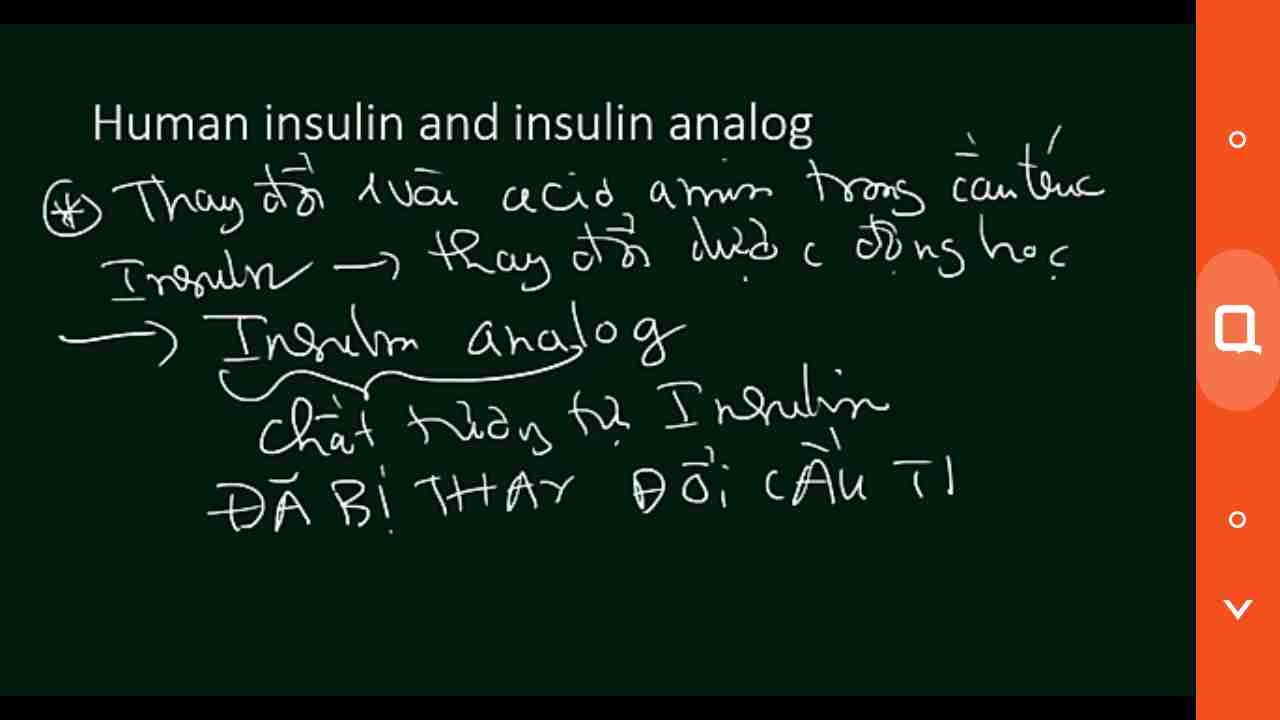 Human insulin and insulin analog
* Thay đổi 1 vài acid amin trong cấu trúc
Insulin → thay đổi dược động học
→ Insulin analog
chất tương tự Insulin
ĐÃ BỊ THAY ĐỔI CẤU T